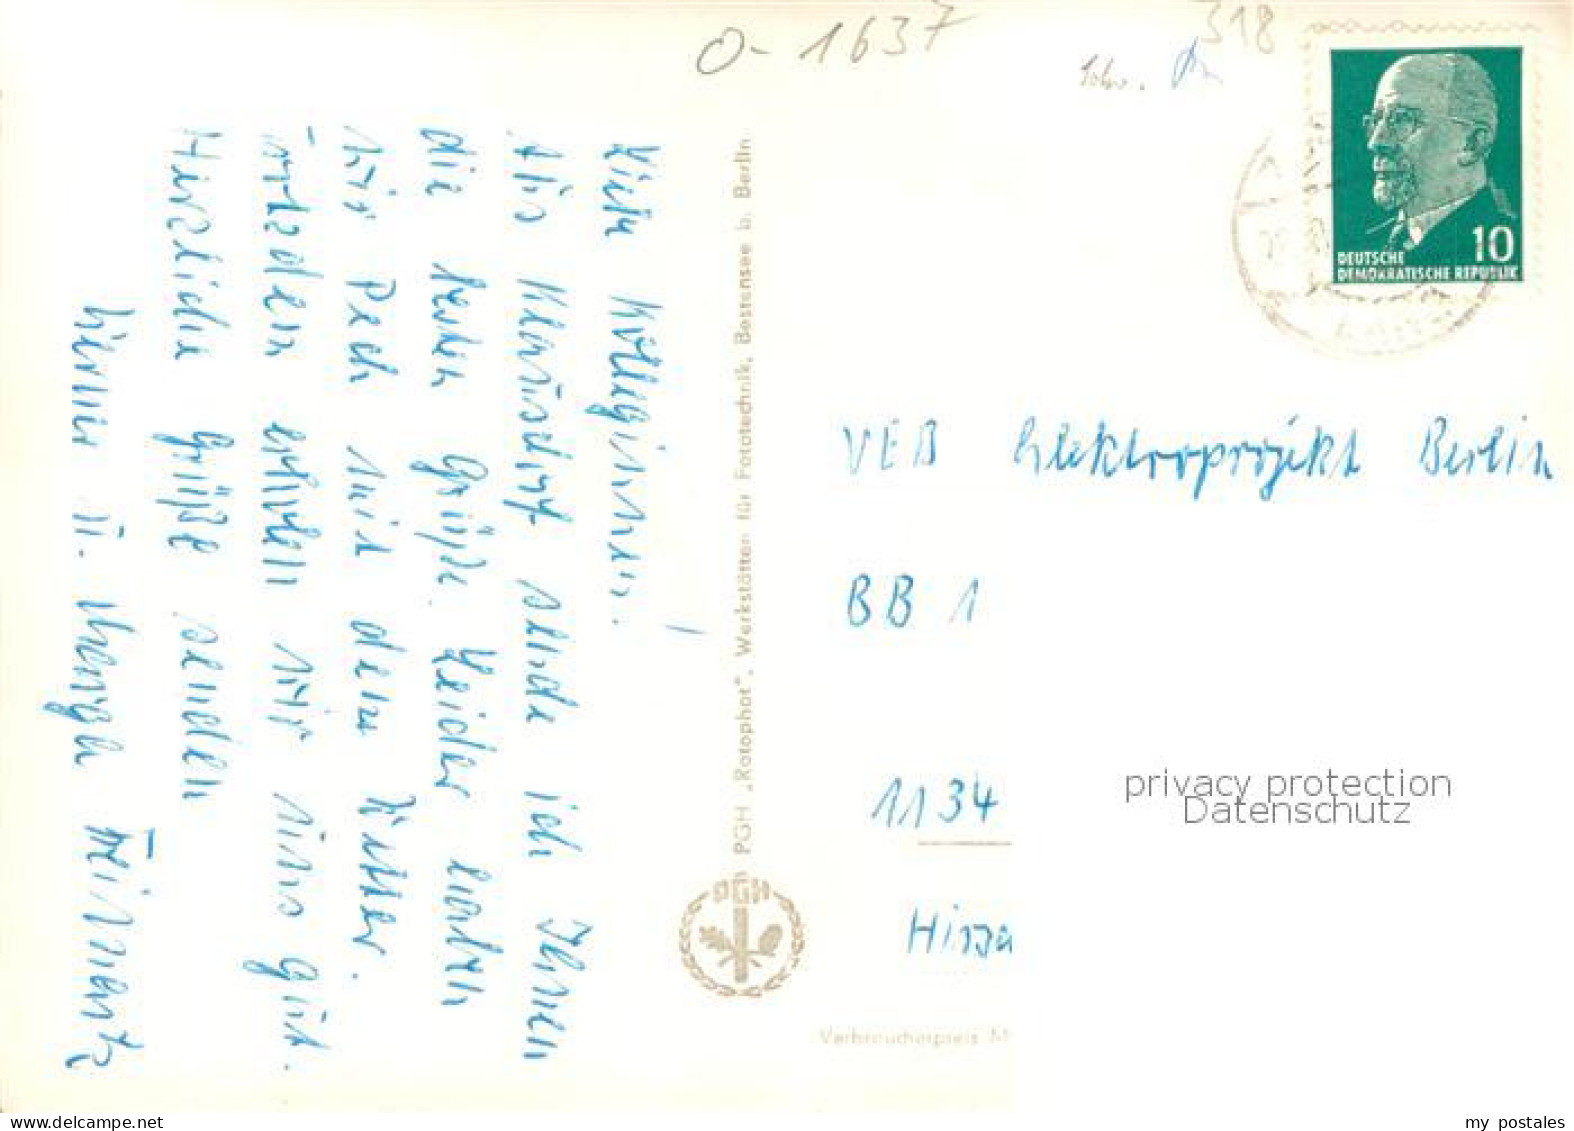 O-1637
318
Liebe Kolleginnen!
Aus Klausdorf sende ich Ihnen
die besten Grüße. Leider haben
wir Pech mit dem Wetter.
Trotzdem erholen wir uns gut.
Herzliche Grüße senden
Werner u.
PGH „Rotophot“, Werkstätten für Fototechnik, Bestensee b. Berlin
PGH
10
DEUTSCHE
DEMOKRATISCHE REPUBLIK
VEB Elektroprojekt Berlin
BB 1
1134
privacy protection
Datenschutz
Verbraucherpreis M
delcampe.net
my postales